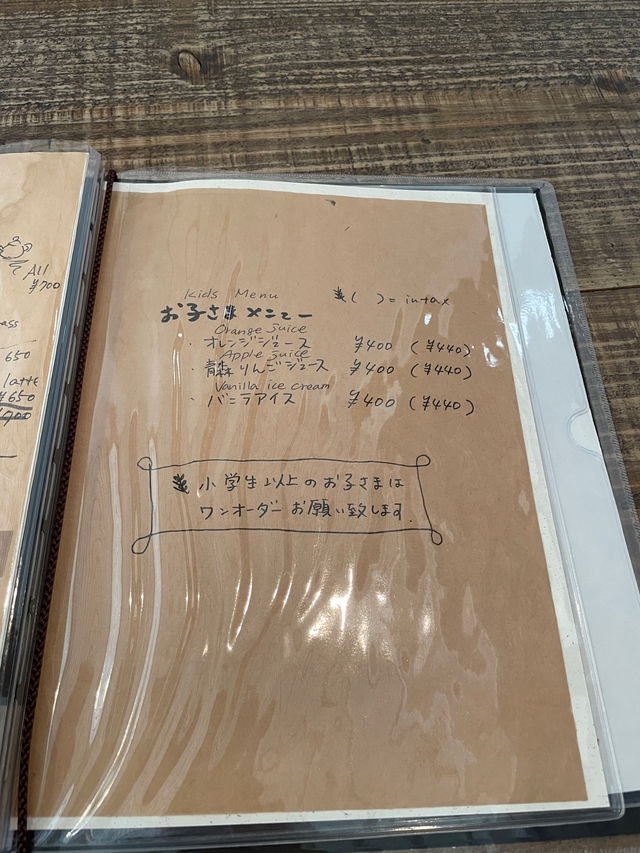 All
¥700
ass
650
latte
¥650
¥700
Kids Menu
※( ) = in tax
お子さまメニュー
Orange juice
・オレンジジュース ¥400 (¥440)
Apple juice
・青森りんごジュース ¥400 (¥440)
Vanilla ice cream
・バニラアイス ¥400 (¥440)
※小学生以上のお子さまは
ワンオーダーお願い致します.